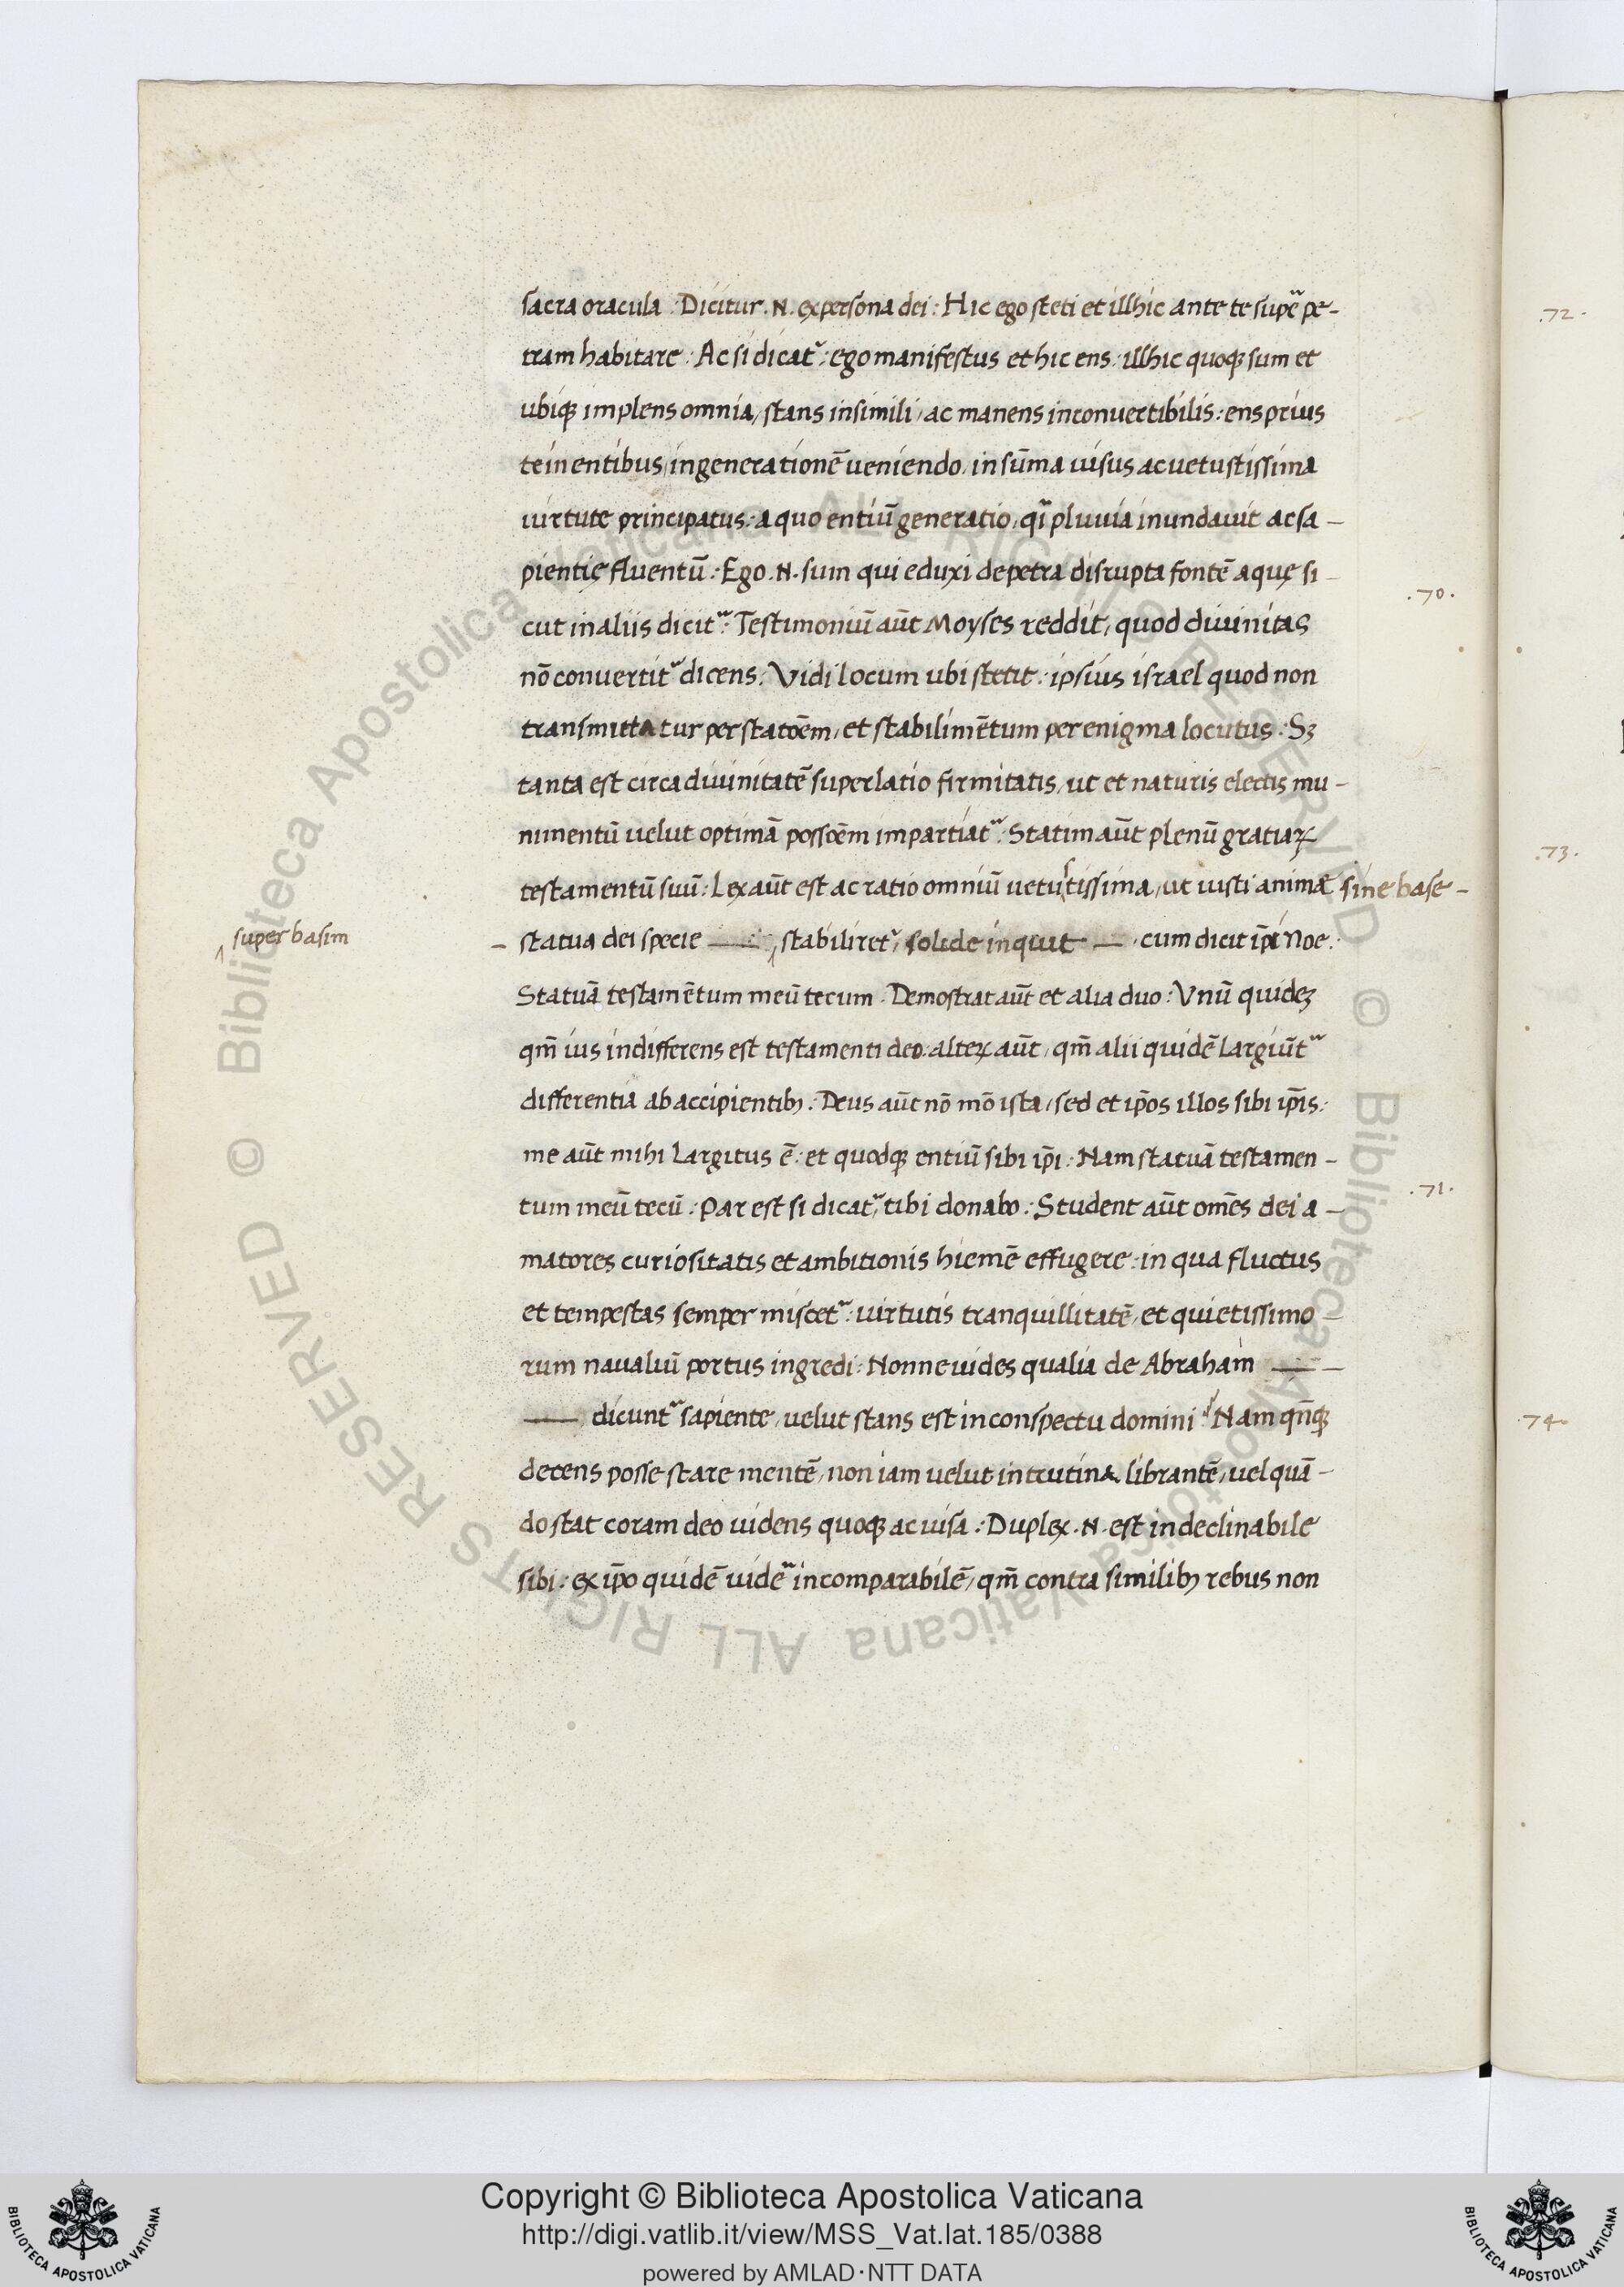 sacra oracula : Dicitur . N . ex persona dei : Hic ego steti et illhic ante te supē pe-
tram habitare : Ac si dicat᷑ : ego manifestus et hic ens : illhic quoqꝫ sum et
ubiqꝫ implens omnia, stans in simili, ac manens inconvertibilis : ens prius
te in entibus, in generationē veniendo, in sūma uisus ac vetustissima
uirtute principatus : a quo entiū generatio, qͣi pluvia inundavit ac sa-
pientię fluentū : Ego . N . sum qui eduxi de petra disrupta fontē aquę si-
cut in aliis dicit᷑ : Testimoniū aūt Moyses reddit, quod divinitas
nō convertit᷑ dicens : Vidi locum ubi stetit : ipsius israel quod non
transmittatur per statōem, et stabilimētum per enigma locutus : Sꝫ
tanta est circa divinitatē superlatio firmitatis, ut et naturis electis mu-
nimentū velut optimā possōem impartiat᷑ : Statim aūt plenū gratiaꝝ
testamentū suū : Lex aūt est ac ratio omniū vetustissima, ut iusti animæ sine base -
super basim
- statua dei specie —— stabiliret᷑, solide inquit — cum dicit ip̄i Noe :
Statuā testamētum meū tecum : Demostrat aūt et alia duo : Vnū quidēꝫ
qm̄ ius indifferens est testamenti deo : alteꝝ aūt, qm̄ alii quidē largiūt᷑
differentia ab accipientibꝫ : Deus aūt nō mō ista, sed et ip̄os illos sibi ip̄is :
me aūt mihi largitus ē : et quodqꝫ entiū sibi ip̄i : Nam statuā testamen-
tum meū tecū : Par est si dicat᷑, tibi donabo : Student aūt om̄es dei a-
matores curiositatis et ambitionis hiemē effugere : in qua fluctus
et tempestas semper miscet᷑ : uirtutis tranquillitatē, et quietissimo-
rum navaliū portus ingredi : Nonne uides qualia de Abraham —— -
—— dicunt᷑ sapiente, velut stans est in conspectu domini : Nam qn̄qꝫ
decens posse stare mentē, non iam velut in trutina librantē, vel quā-
do stat coram deo uidens quoqꝫ ac uisa : Duplex . N . est indeclinabile
sibi : ex ip̄o quidē uidē᷑ incomparabilē, qm̄ contra similibꝫ rebus non
.70.
.71.
.72.
.73.
.74.
Copyright © Biblioteca Apostolica Vaticana
http://digi.vatlib.it/view/MSS_Vat.lat.185/0388
powered by AMLAD·NTT DATA
BIBLIOTECA APOSTOLICA VATICANA
BIBLIOTECA APOSTOLICA VATICANA
© Biblioteca Apostolica Vaticana ALL RIGHTS RESERVED
© Biblioteca Apostolica Vaticana ALL RIGHTS RESERVED